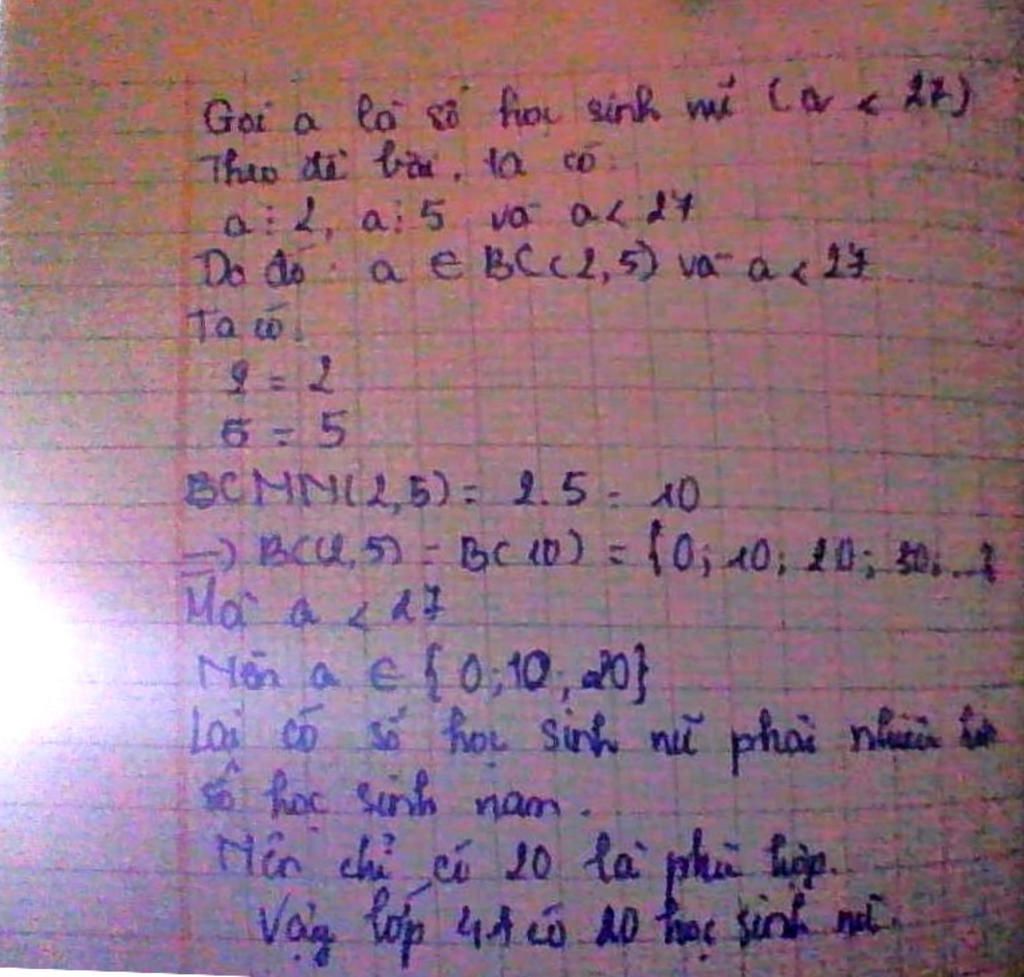 Gọi a là số học sinh nữ (a < 27)
Theo đề bài, ta có:
a ⋮ 2, a ⋮ 5 và a < 27
Do đó: a ∈ BC(2,5) và a < 27
Ta có:
2 = 2
5 = 5
BCNN(2,5) = 2.5 = 10
=> BC(2,5) = B(10) = {0; 10; 20; 30; ...}
Mà a < 27
Nên a ∈ {0; 10; 20}
Lại có số học sinh nữ phải nhiều hơn
số học sinh nam.
Nên chỉ có 20 là phù hợp.
Vậy lớp 4.1 có 20 học sinh nữ.